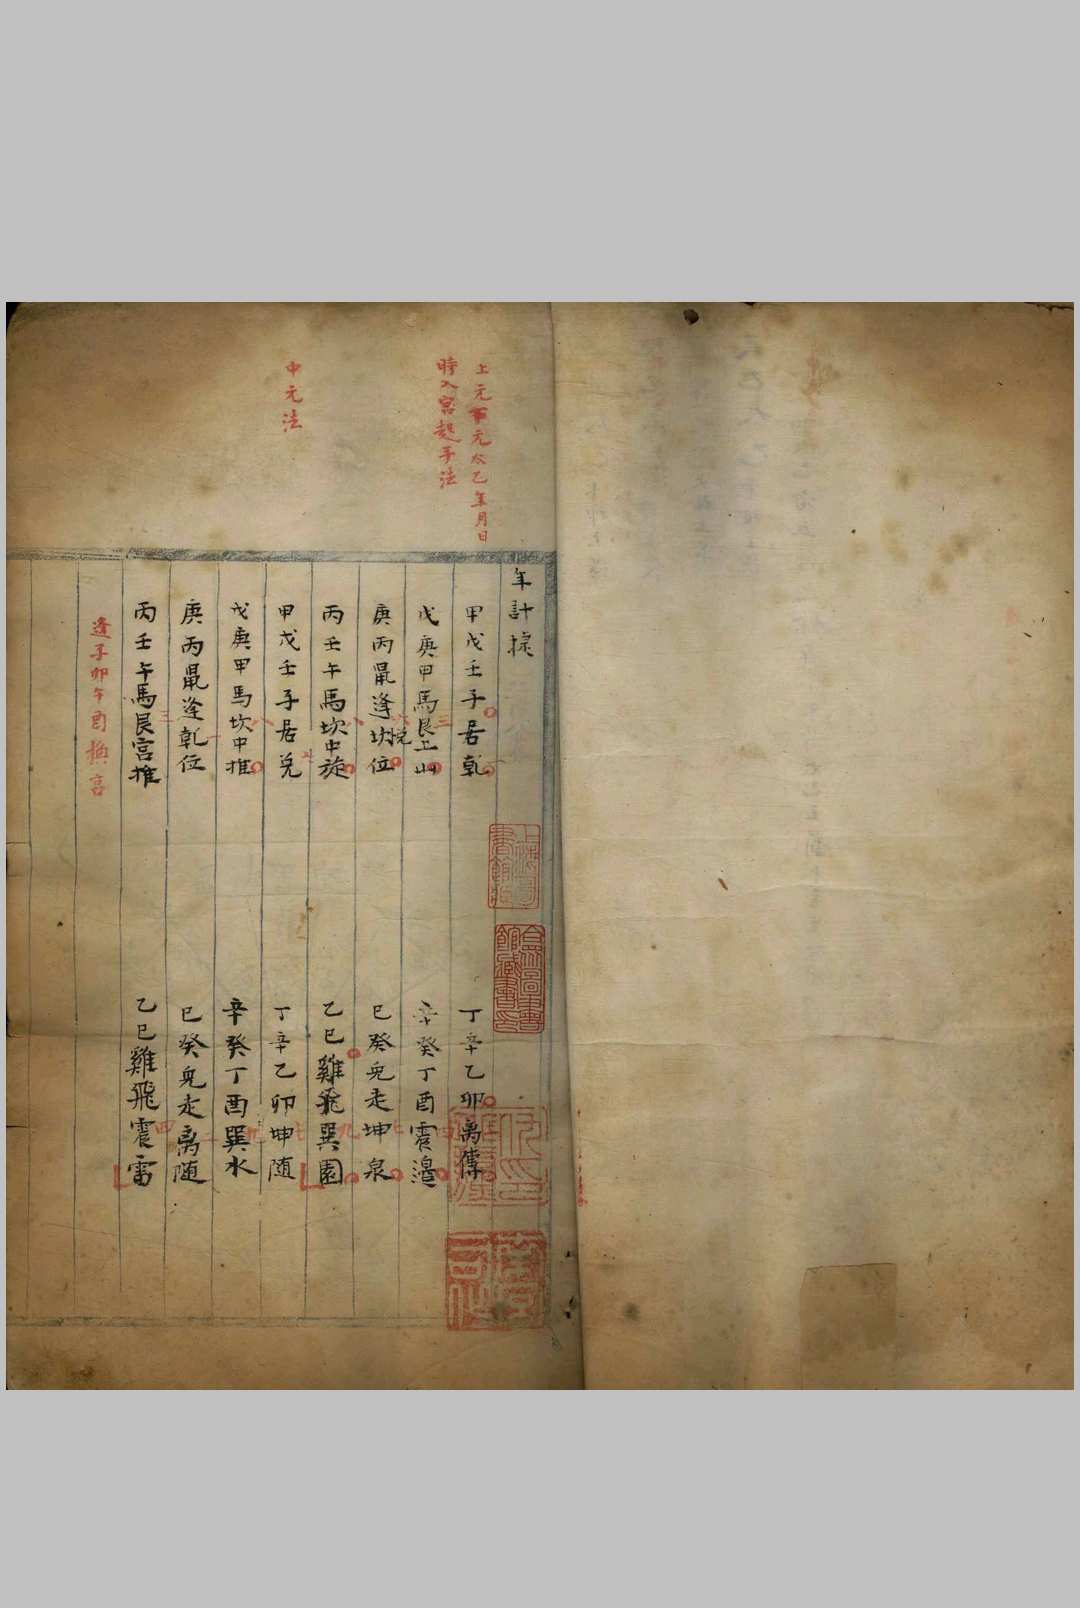 上元下元太乙年月日
時入宮起手法
年計捉
甲戊壬子居乾
丁辛乙卯离傳
戊庚甲馬艮上山
辛癸丁酉震邉
庚丙鼠逢坎位
巳癸兔走坤泉
丙壬午馬坎中旋
乙巳雞飛巽園
中元法
甲戊壬子居兌
丁辛乙卯坤随
戊庚甲馬坎中推
辛癸丁酉巽水
庚丙鼠逢乾位
巳癸兔走离随
丙壬午馬艮宮推
乙巳雞飛震雷
逢子卯午酉換宮